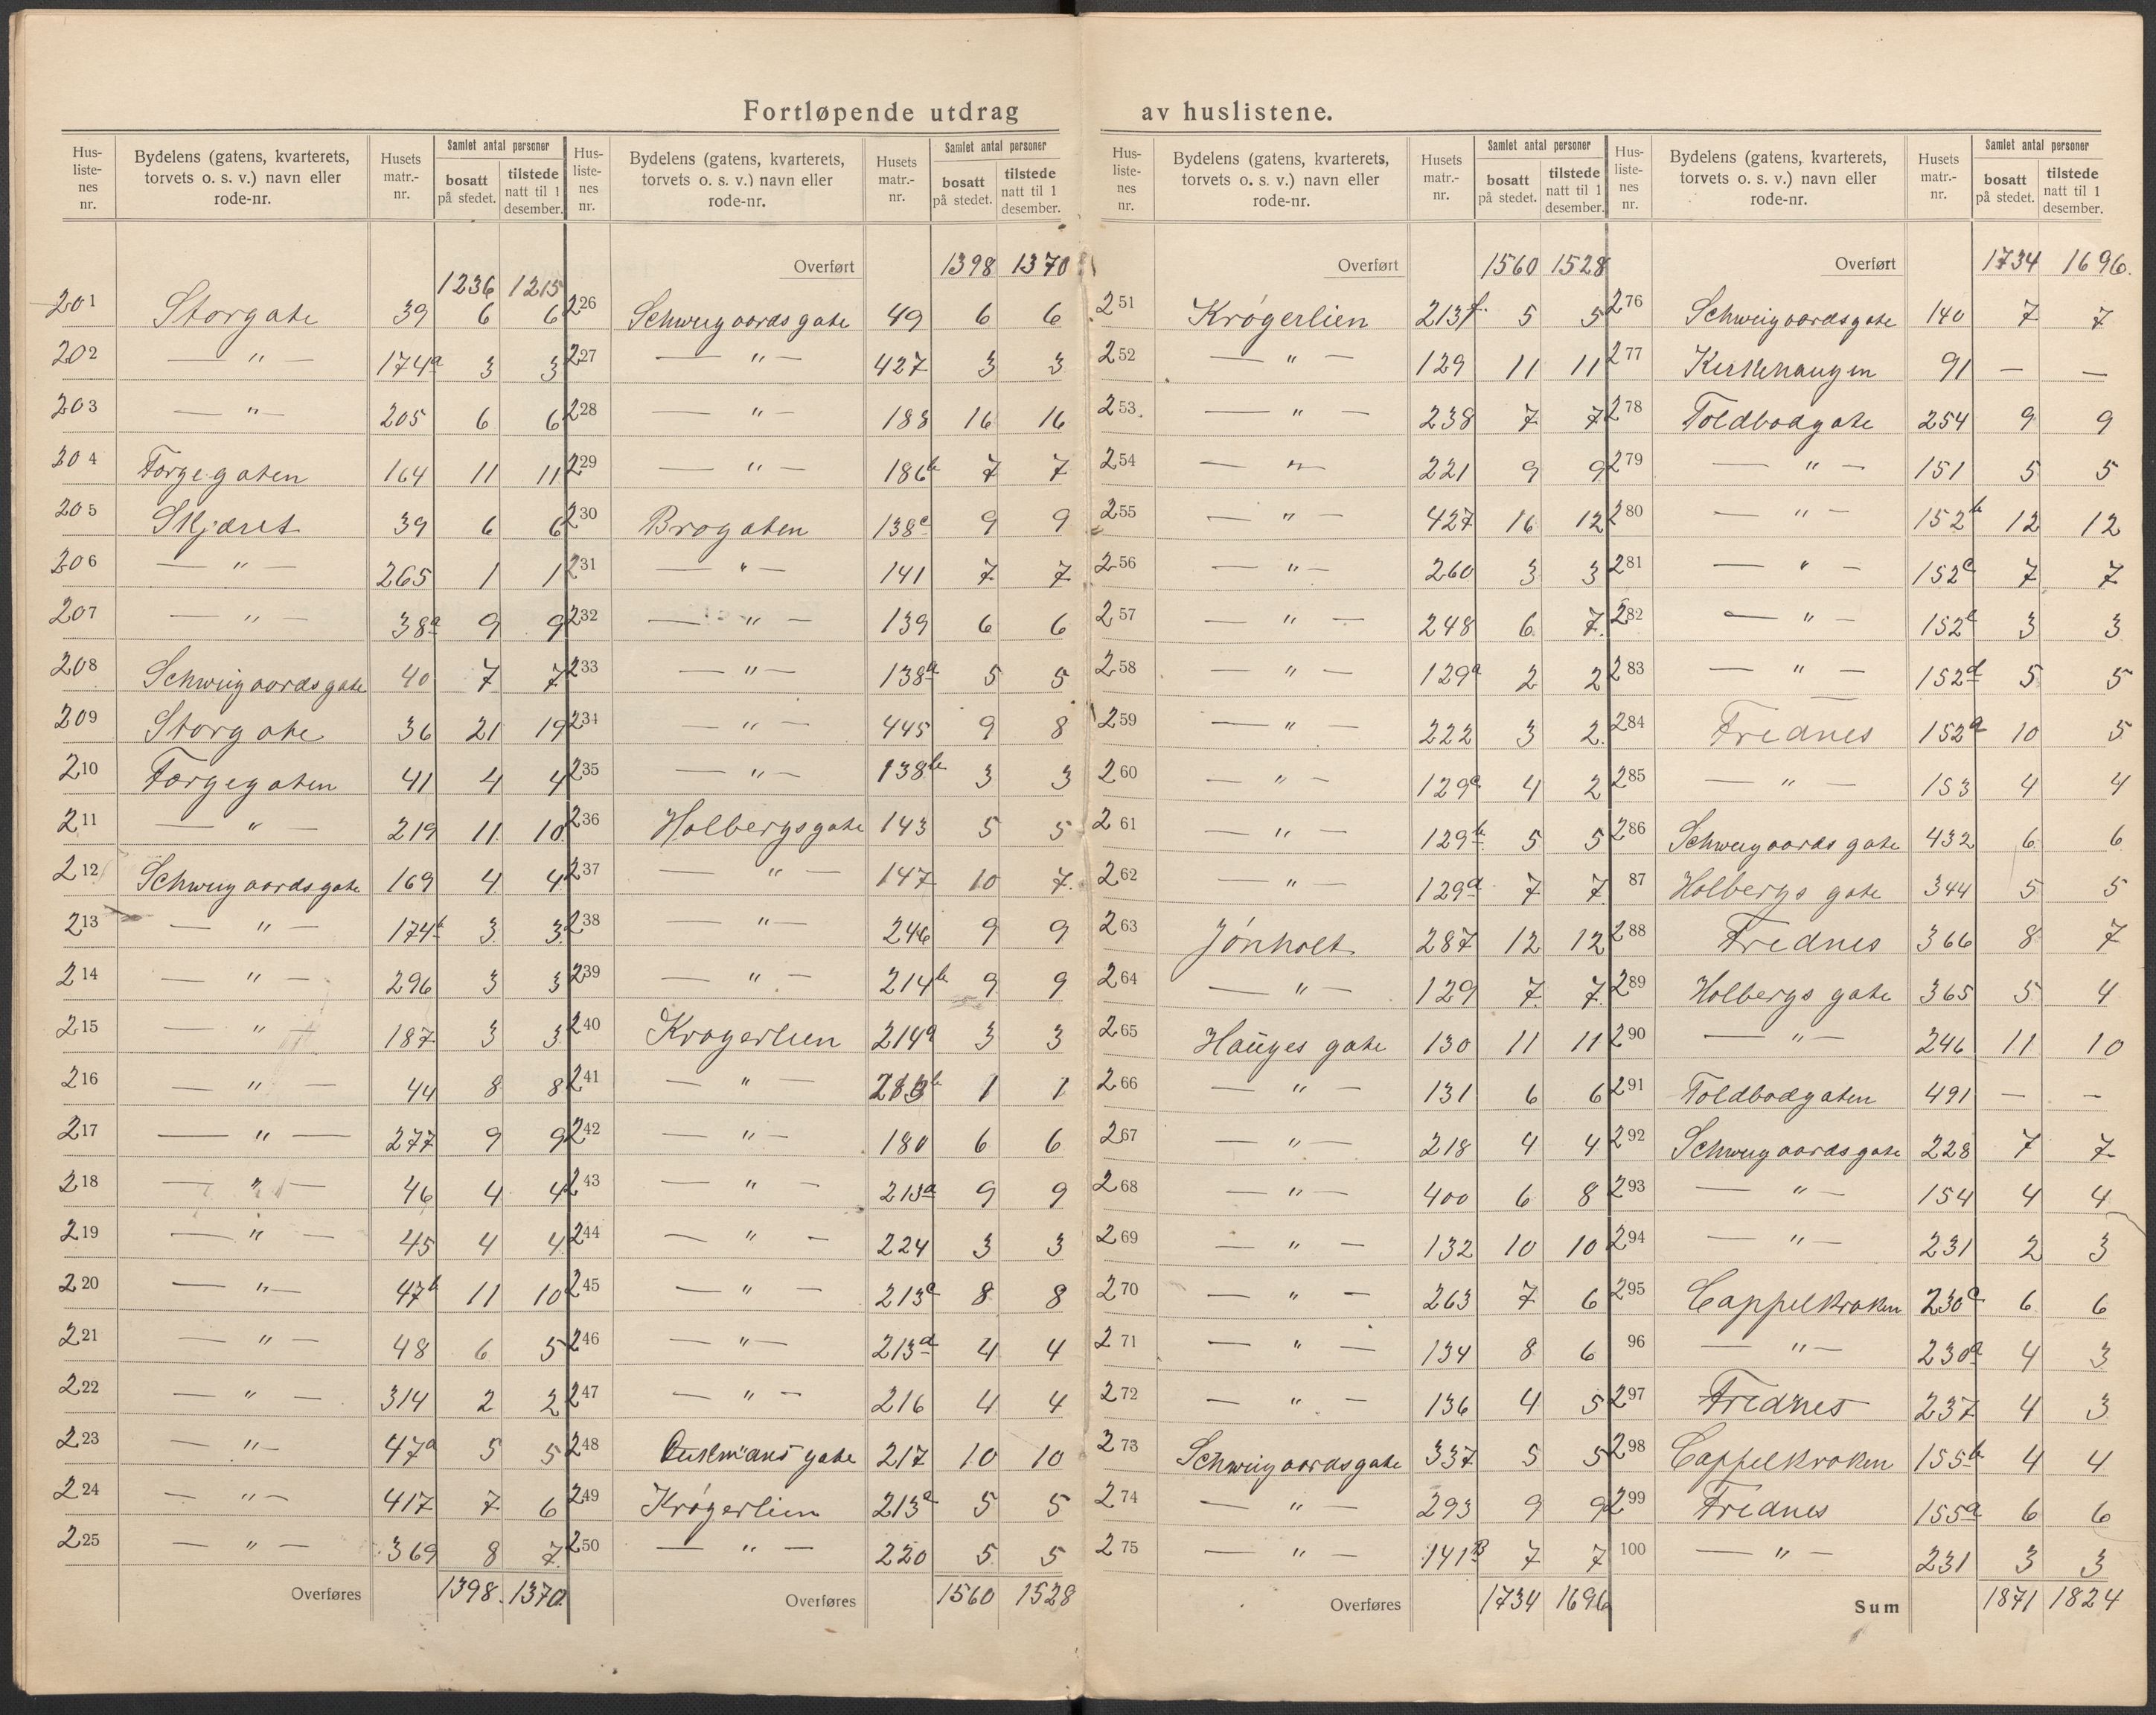 Fortløpende utdrag av huslistene.
Hus-liste-nes nr. | Bydelens (gatens, kvarterets, torvets o. s. v.) navn eller rode-nr. | Husets matr.-nr. | Samlet antal personer bosatt på stedet. | tilstede natt til 1 desember.
1236 1215
201 Storgate 39 6 6
202 — " — 174a 3 3
203 — " — 205 6 6
204 Færgegaten 164 11 11
205 Skjæret 39 6 6
206 — " — 265 1 1
207 — " — 38a 9 9
208 Schweigaardsgate 40 7 7
209 Storgate 36 21 19
210 Færgegaten 41 4 4
211 — " — 219 11 10
212 Schweigaardsgate 169 4 4
213 — " — 174b 3 3
214 — " — 296 3 3
215 — " — 187 3 3
216 — " — 44 8 8
217 — " — 277 9 9
218 — " — 46 4 4
219 — " — 45 4 4
220 — " — 47b 11 10
221 — " — 48 6 5
222 — " — 314 2 2
223 — " — 47a 5 5
224 — " — 417 7 6
225 — " — 369 8 7
Overføres 1398 1370
Hus-liste-nes nr. | Bydelens (gatens, kvarterets, torvets o. s. v.) navn eller rode-nr. | Husets matr.-nr. | Samlet antal personer bosatt på stedet. | tilstede natt til 1 desember.
Overført 1398 1370
226 Schweigaardsgate 49 6 6
227 — " — 427 3 3
228 — " — 188 16 16
229 — " — 186b 7 7
230 Brogaten 138c 9 9
231 — " — 141 7 7
232 — " — 139 6 6
233 — " — 138a 5 5
234 — " — 445 9 8
235 — " — 138b 3 3
236 Holbergsgate 143 5 5
237 — " — 147 10 7
238 — " — 246 9 9
239 — " — 214b 9 9
240 Krogerlien 214a 3 3
241 — " — 1 1
242 — " — 180 6 6
243 — " — 213a 9 9
244 — " — 224 3 3
245 — " — 213c 8 8
246 — " — 213d 4 4
247 — " — 216 4 4
248 gate 217 10 10
249 Krøgerlien 213e 5 5
250 — " — 220 5 5
Overføres 1560 1528
Hus-liste-nes nr. | Bydelens (gatens, kvarterets, torvets o. s. v.) navn eller rode-nr. | Husets matr.-nr. | Samlet antal personer bosatt på stedet. | tilstede natt til 1 desember.
Overført 1560 1528
251 Krøgerlien 213f. 5 5
252 — " — 129 11 11
253. — " — 238 7 7
254 — " — 221 9 9
255 — " — 427 16 12
256 — " — 260 3 3
257 — " — 248 6 7
258 — " — 129a 2 2
259 — " — 222 3 2
260 — " — 129c 4 2
261 — " — 129b 5 5
262 — " — 129d 7 7
263 Jønholt 287 12 12
264 — " — 129 7 7
265 Hauges gate 130 11 11
266 — " — 131 6 6
267 — " — 218 4 4
268 — " — 400 6 8
269 — " — 132 10 10
270 — " — 263 7 6
271 — " — 134 8 6
272 — " — 136 4 5
273 Schweigaardsgate 337 5 5
274 — " — 293 9 9
275 — " — 141B 7 7
Overføres 1734 1696
Hus-liste-nes nr. | Bydelens (gatens, kvarterets, torvets o. s. v.) navn eller rode-nr. | Husets matr.-nr. | Samlet antal personer bosatt på stedet. | tilstede natt til 1 desember.
Overført 1734 1696.
276 Schweigaardsgate 140 7 7
277 Kirkehaugen 91 — —
278 Toldbodgate 254 9 9
279 — " — 151 5 5
280 — " — 152b 12 12
281 — " — 152c 7 7
282 — " — 152e 3 3
283 — " — 152d 5 5
284 Frednes 152a 10 5
285 — " — 153 4 4
286 Schweigaards gate 432 6 6
87 Holbergs gate 344 5 5
288 Frednes 366 8 7
289 Holbergs gate 365 5 4
290 — " — 246 11 10
291 Toldbodgaten 491 — —
292 Schweigaardsgate 228 7 7
293 — " — 154 4 4
294 — " — 231 2 3
295 Cappelkroken 230c 6 6
96 — " — 230a 4 3
297 Frednes 237 4 3
298 Cappelkroken 155b 4 4
299 Frednes 155a 6 6
100 — " — 231 3 3
Sum 1871 1824